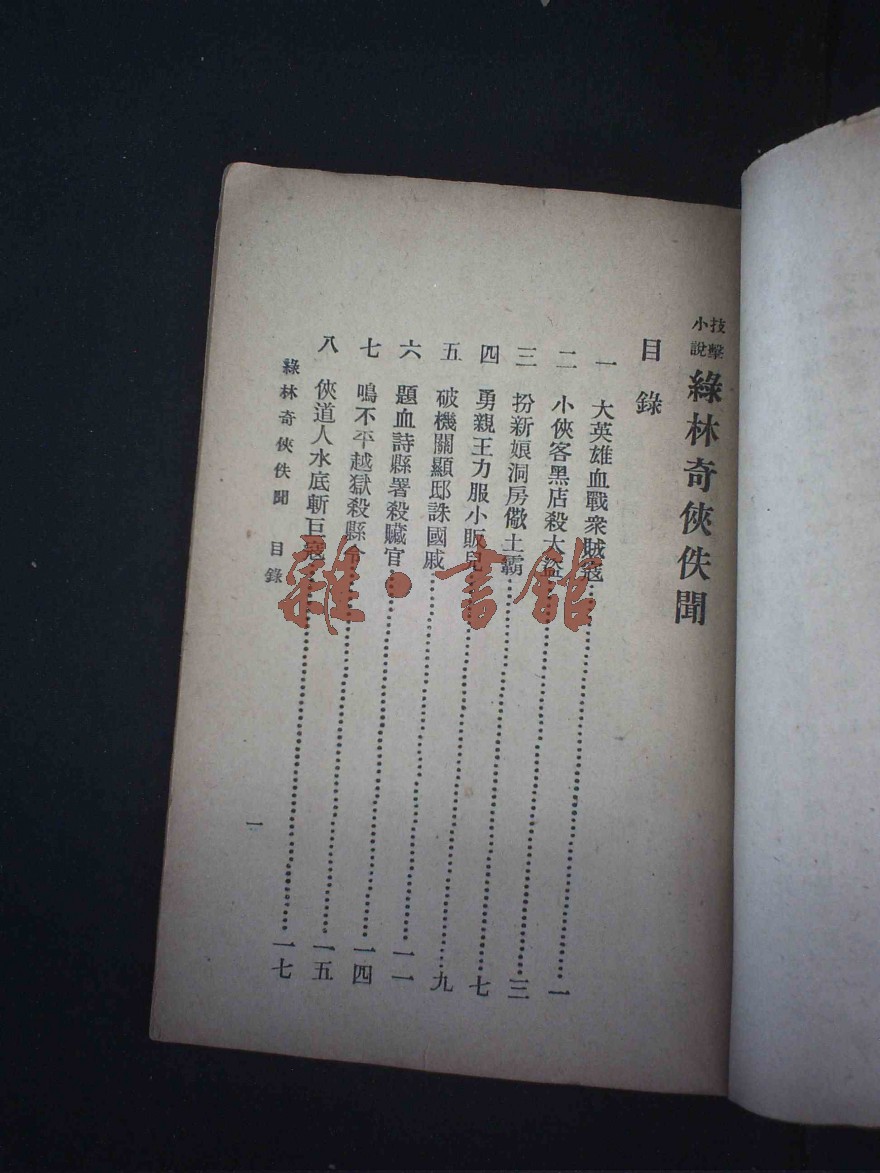 技擊小說
綠林奇俠佚聞
目錄
一 大英雄血戰衆賊寇……一
二 小俠客黑店殺大盜……三
三 扮新娘洞房儆土霸……七
四 勇親王力服小販兒……九
五 破機關顯邸誅國戚……一一
六 題血詩縣署殺贓官……一四
七 鳴不平越獄殺縣令……一五
八 俠道人水底斬巨寇……一七
綠林奇俠佚聞 目錄
一
雜·書館